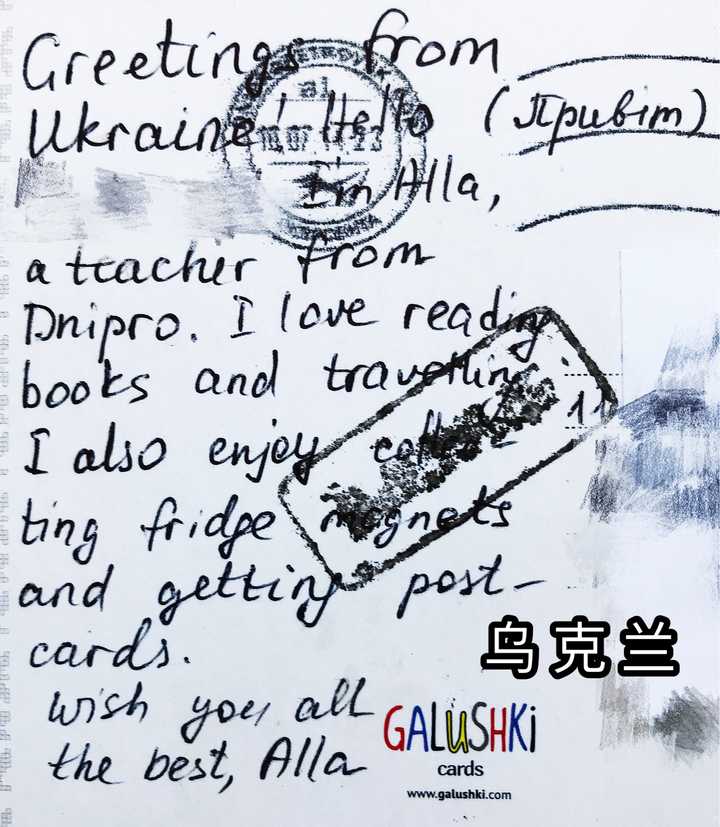 Greetings from
Ukraine! Hello (Привіт)
I'm Alla,
a teacher from
Dnipro. I love reading
books and travelling.
I also enjoy collec-
ting fridge magnets
and getting post-
cards.
Wish you all
the best, Alla
乌克兰
GALUSHKi
cards
www.galushki.com